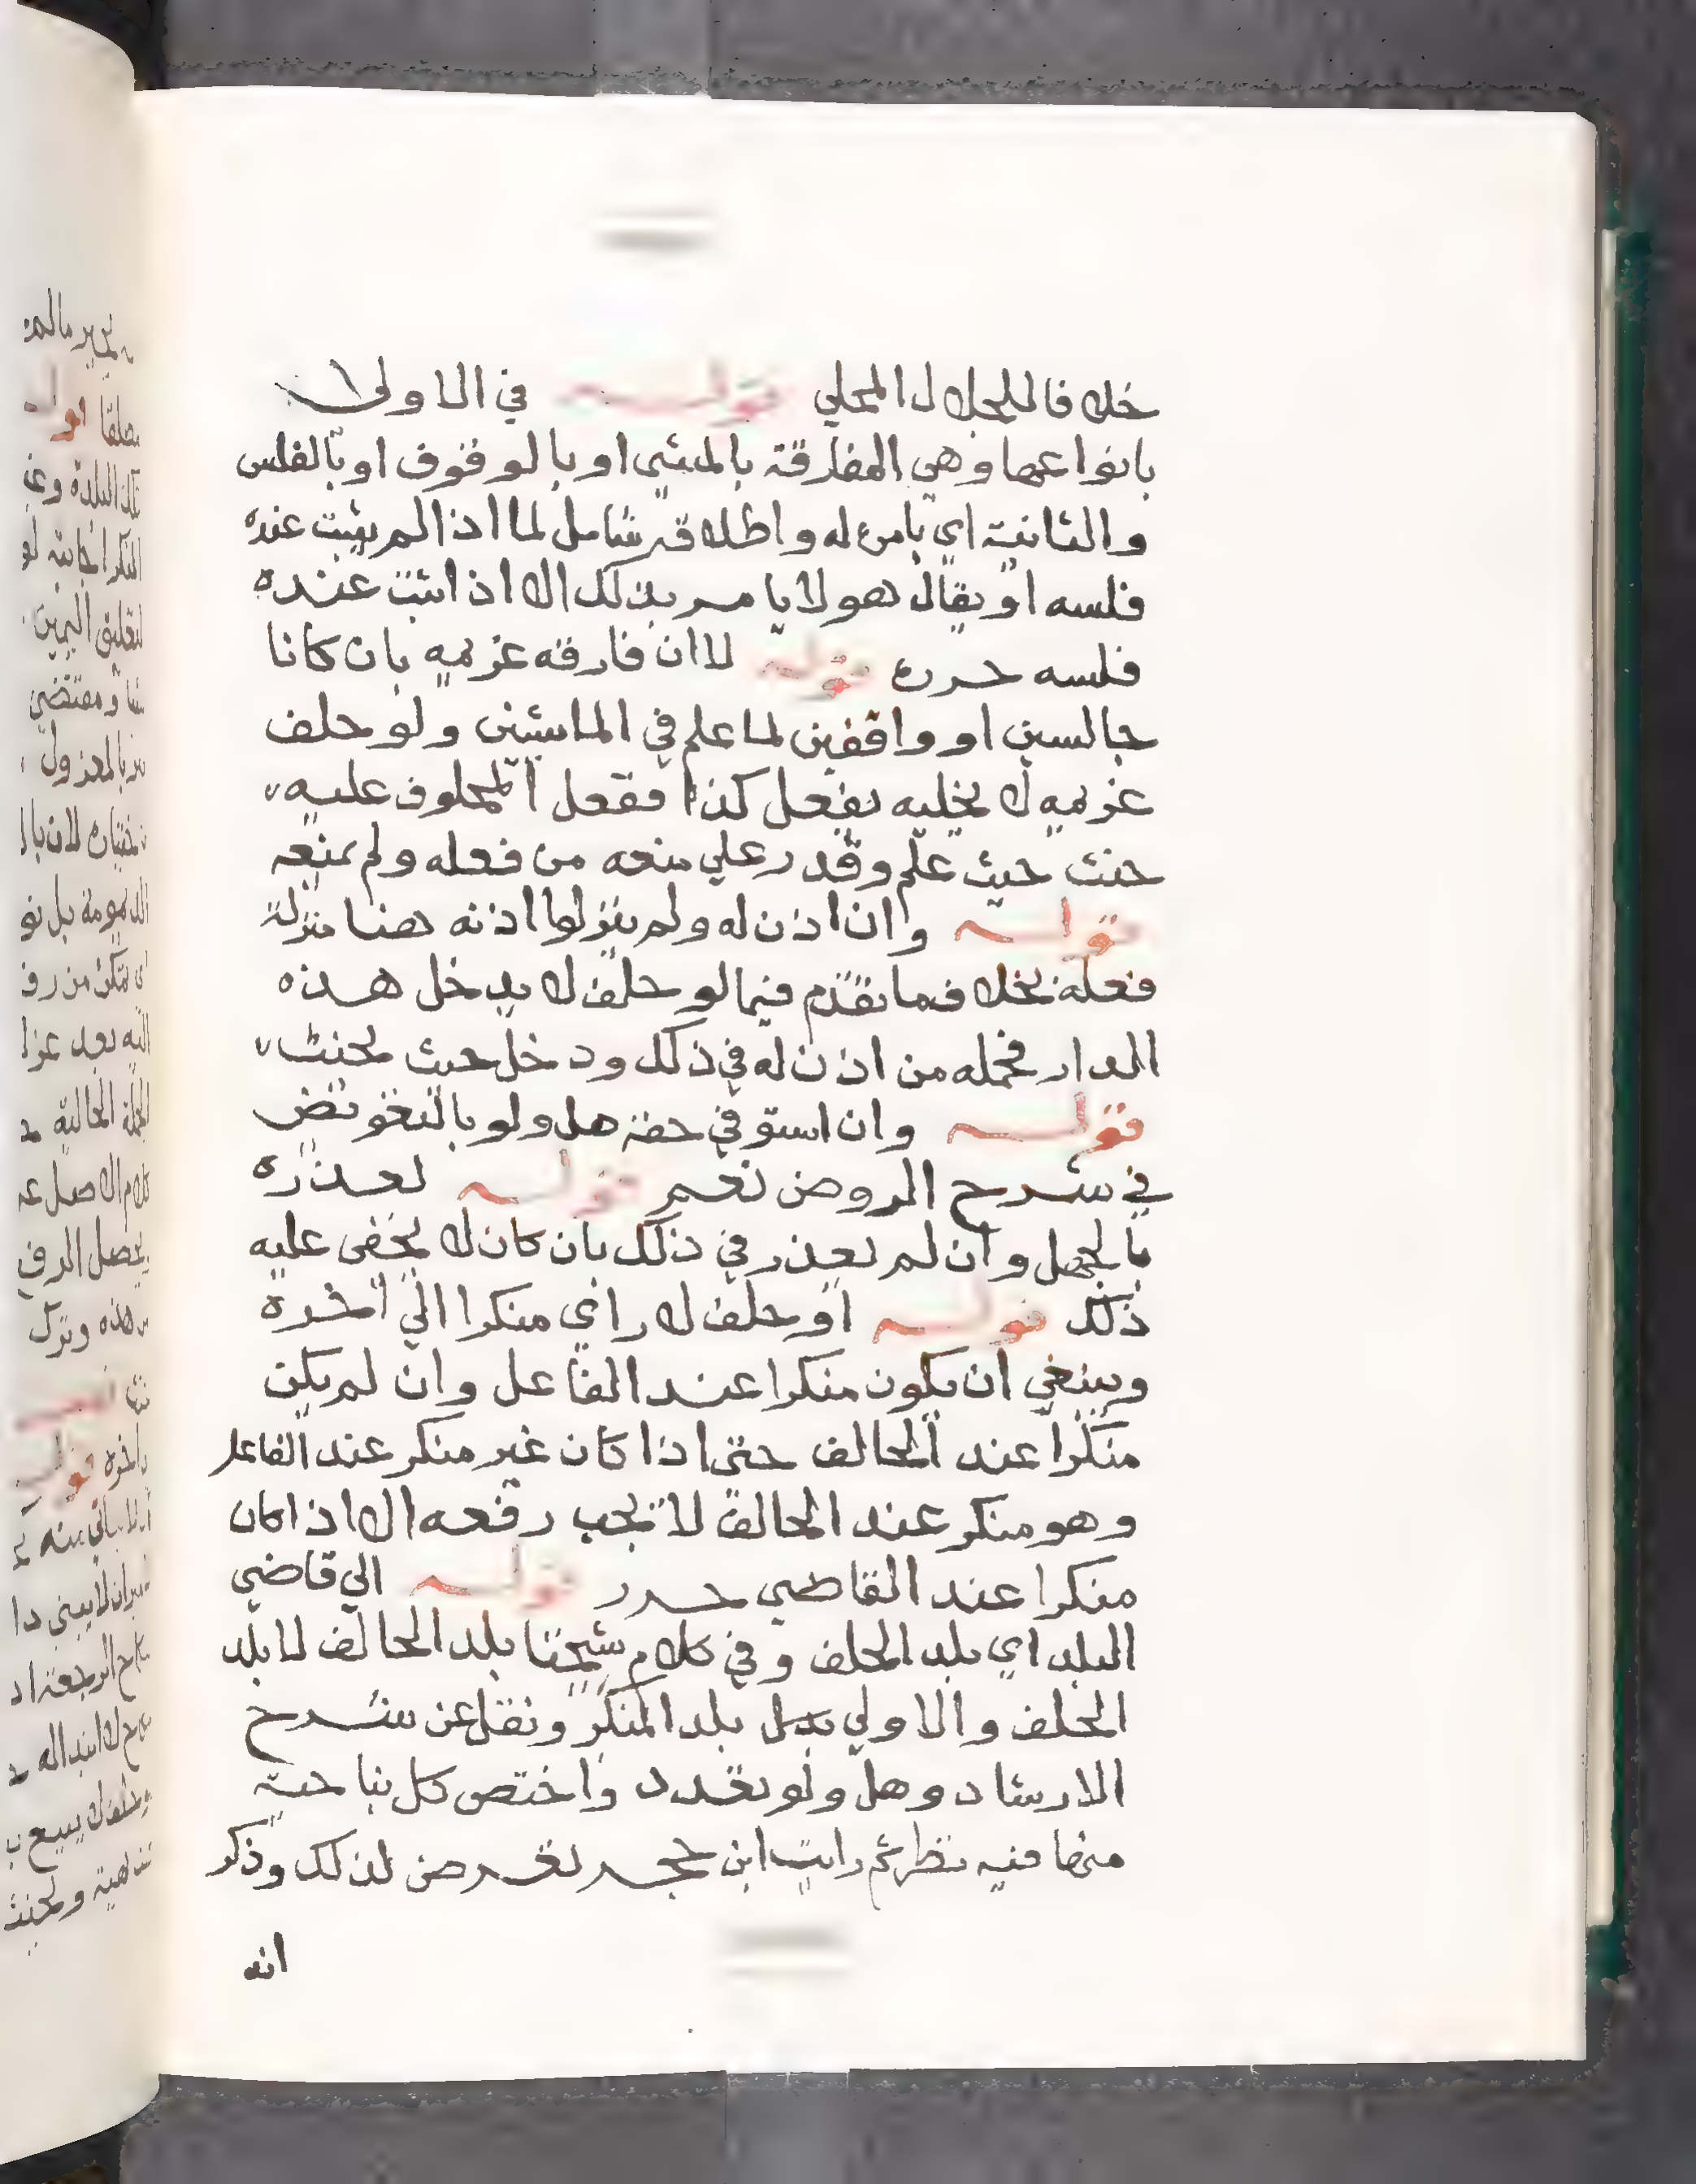 خلافا للجلال المحلي قوله في الاولى
بانواعها وهي المفارقة بالمشي او بالوقوف او بالفلس
والثانية اي بامره له واطلاقه شامل لما اذا لم يثبت عنده
فلسه او يقال هو لا يامر بذلك الا اذا ثبت عنده
فلسه حرره قوله لا ان فارقه غريمه بان كانا
جالسين او واقفين لما علم في الماشيين ولو حلف
غريمه لا يخليه يفعل كذا ففعل المحلوف عليه
حنث حيث علم وقدر علي منعه من فعله ولم يمنعه
قوله وان اذن له ولم ينزلوا اذنه هنا منزلة
فعله بخلاف ما تقدم فيما لو حلف لا يدخل هذه
الدار فحمله من اذن له في ذلك ودخل حيث يحنث
قوله وان استوفي حقه هل ولو بالتعويض
في شرح الروض نعم قوله لعذره
بالجهل وان لم يعذر في ذلك بان كان لا يخفى عليه
ذلك قوله او حلف لا راي منكرا الي اخره
وينبغي ان يكون منكرا عند الفاعل وان لم يكن
منكرا عند الحالف حتى اذا كان غير منكر عند الفاعل
وهو منكر عند الحالف لا يجب رفعه الا اذا كان
منكرا عند القاضي حرر قوله الي قاضي
البلد اي بلد الحلف وفي كلام شيخنا بلد الحالف لا بلد
الحلف والاولي بل بلد المنكر ونقل عن شرح
الارشاد وهل ولو تعدد واختص كل بناحية
منها فيه نظر ثم رايت ابن حجر تعرض لذلك وذكر
انه